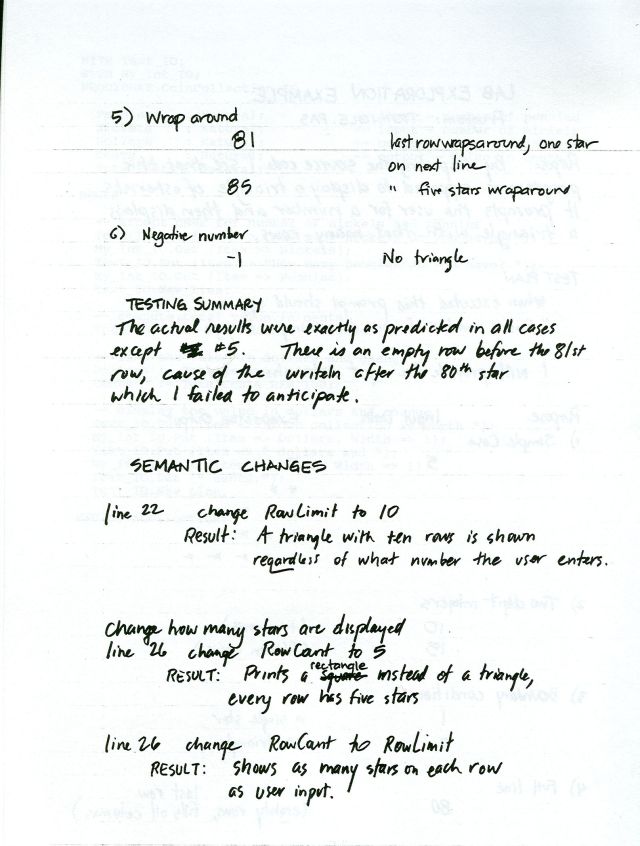 5) Wrap around
81 last row wraps around, one star
on next line
85 " five stars wraparound
6) Negative number
-1 No triangle
TESTING SUMMARY
The actual results were exactly as predicted in all cases
except #5. There is an empty row before the 81st
row, cause of the writeln after the 80th star
which I failed to anticipate.
SEMANTIC CHANGES
line 22 change RowLimit to 10
Result: A triangle with ten rows is shown
regardless of what number the user enters.
Change how many stars are displayed
line 26 change RowCount to 5
RESULT: Prints a rectangle instead of a triangle,
every row has five stars
line 26 change RowCount to RowLimit
RESULT: shows as many stars on each row
as user input.